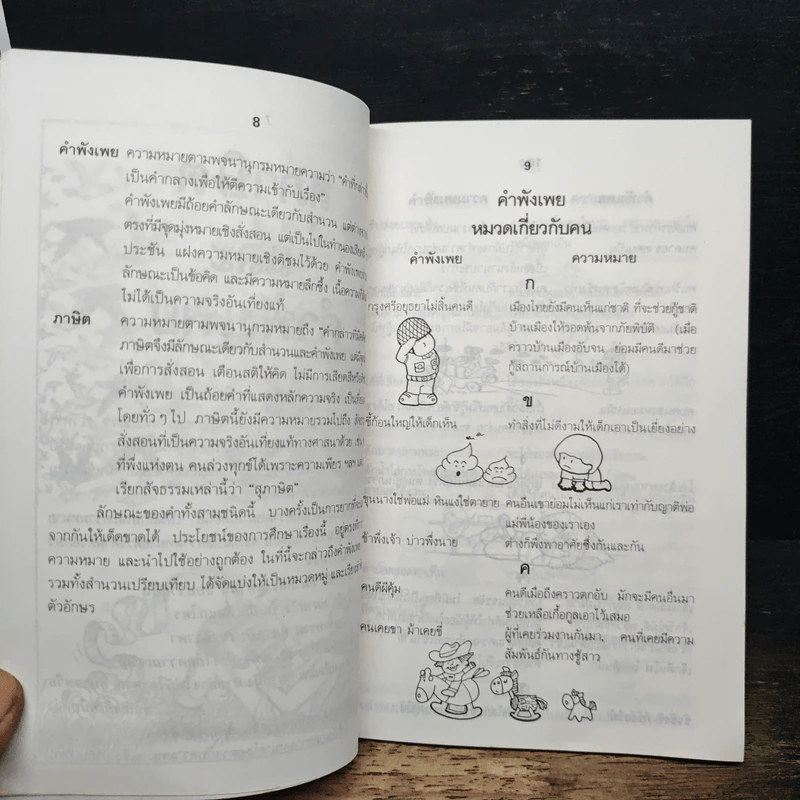 8
คำพังเพย ความหมายตามพจนานุกรมหมายความว่า "คำที่กล่าว
เป็นคำกลางเพื่อให้ตีความเข้ากับเรื่อง"
คำพังเพยมีถ้อยคำลักษณะเดียวกับสำนวน แต่ต่าง
ตรงที่มีจุดมุ่งหมายเชิงสั่งสอน แต่เป็นไปในทำนอง
ประชัน แฝงความหมายเชิงติชมไว้ด้วย คำพังเพย
ลักษณะเป็นข้อคิด และมีความหมายลึกซึ้ง เนื้อความ
ไม่ได้เป็นความจริงอันเที่ยงแท้
ภาษิต ความหมายตามพจนานุกรมหมายถึง "คำกล่าวที่
ภาษิตจึงมีลักษณะเดียวกับสำนวนและคำพังเพย แต่
เพื่อการสั่งสอน เตือนสติให้คิด ไม่มีการเสียดสี
คำพังเพย เป็นถ้อยคำที่แสดงหลักความจริง เป็นที่
โดยทั่วๆ ไป ภาษิตนี้ยังมีความหมายรวมไปถึง
สั่งสอนที่เป็นความจริงอันเที่ยงแท้ทางศาสนาด้วย เช่น
ที่พึ่งแห่งตน คนล่วงทุกข์ได้เพราะความเพียร ฯลฯ
เรียกสัจธรรมเหล่านี้ว่า "สุภาษิต"
ลักษณะของคำทั้งสามชนิดนี้ บางครั้งเป็นการยากที่จะ
จากกันให้เด็ดขาดได้ ประโยชน์ของการศึกษาเรื่องนี้ อยู่ตรงที่
ความหมาย และนำไปใช้อย่างถูกต้อง ในที่นี้จะกล่าวถึงคำพังเพย
รวมทั้งสำนวนเปรียบเทียบ ได้จัดแบ่งให้เป็นหมวดหมู่ และเรียง
ตัวอักษร
9
คำพังเพย
หมวดเกี่ยวกับคน
คำพังเพย ความหมาย
ก
กรุงศรีอยุธยาไม่สิ้นคนดี เมืองไทยยังมีคนเห็นแก่ชาติ ที่จะช่วยกู้ชาติ
บ้านเมืองให้รอดพ้นจากภัยพิบัติ (เมื่อ
คราวบ้านเมืองอับจน ย่อมมีคนดีมาช่วย
กู้สถานการณ์บ้านเมืองได้)
ข
ขี้ก้อนใหญ่ให้เด็กเห็น ทำสิ่งที่ไม่ดีงามให้เด็กเอาเป็นเยี่ยงอย่าง
ขุนนางใช่พ่อแม่ หินแง่ใช่ตายาย คนอื่นเขาย่อมไม่เห็นแก่เราเท่ากับญาติพ่อ
แม่พี่น้องของเราเอง
ข้าพึ่งเจ้า บ่าวพึ่งนาย ต่างก็พึ่งพาอาศัยซึ่งกันและกัน
ค
คนดีผีคุ้ม คนดีเมื่อถึงคราวตกอับ มักจะมีคนอื่นมา
ช่วยเหลือเกื้อกูลเอาไว้เสมอ
คนเคยขา ม้าเคยขี่ ผู้ที่เคยร่วมงานกันมา, คนที่เคยมีความ
สัมพันธ์กันทางชู้สาว